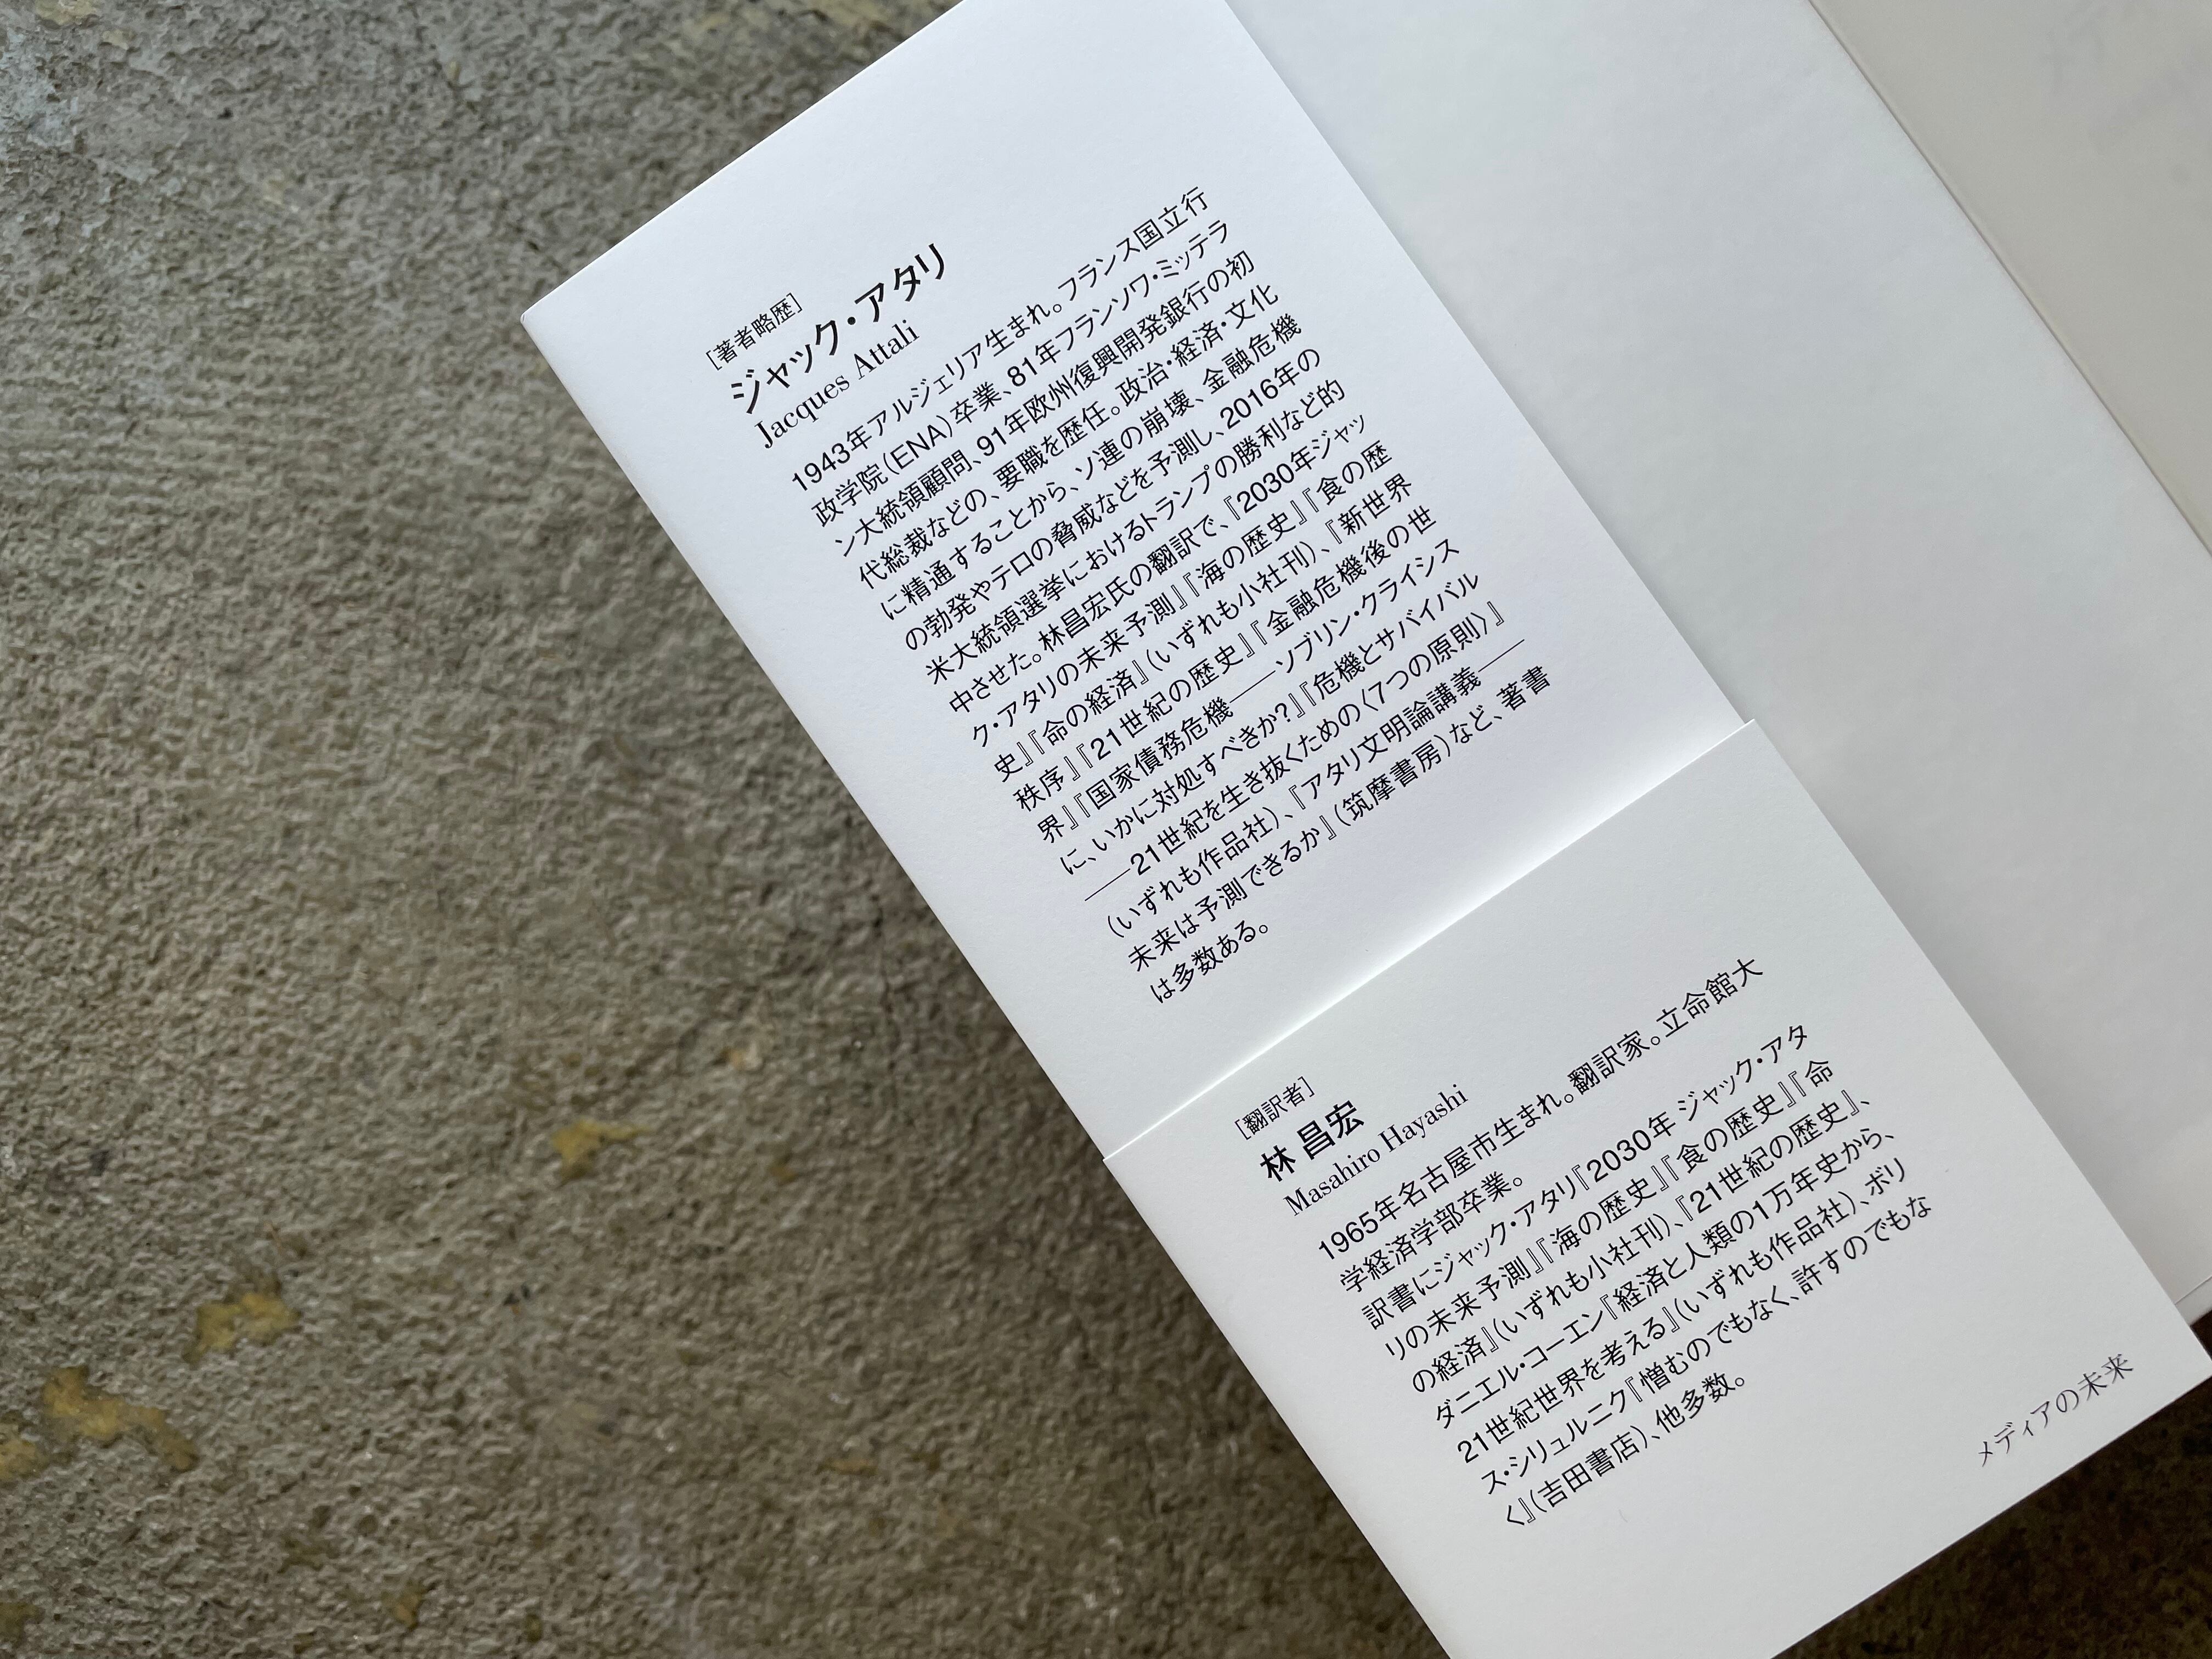 [著者略歴]
ジャック・アタリ
Jacques Attali
1943年アルジェリア生まれ。フランス国立行
政学院(ENA)卒業、81年フランソワ・ミッテラ
ン大統領顧問、91年欧州復興開発銀行の初
代総裁などの、要職を歴任。政治・経済・文化
に精通することから、ソ連の崩壊、金融危機
の勃発やテロの脅威などを予測し、2016年の
米大統領選挙におけるトランプの勝利など的
中させた。林昌宏氏の翻訳で、『2030年ジャッ
ク・アタリの未来予測』『海の歴史』『食の歴
史』『命の経済』(いずれも小社刊)、『新世界
秩序』『21世紀の歴史』『金融危機後の世
界』『国家債務危機——ソブリン・クライシス
に、いかに対処すべきか?』『危機とサバイバル
——21世紀を生き抜くための〈7つの原則〉』
(いずれも作品社)、『アタリ文明論講義——
未来は予測できるか』(筑摩書房)など、著書
は多数ある。
[翻訳者]
林 昌宏
Masahiro Hayashi
1965年名古屋市生まれ。翻訳家。立命館大
学経済学部卒業。
訳書にジャック・アタリ『2030年 ジャック・アタ
リの未来予測』『海の歴史』『食の歴史』『命
の経済』(いずれも小社刊)、『21世紀の歴史』、
ダニエル・コーエン『経済と人類の1万年史から、
21世紀世界を考える』(いずれも作品社)、ボリ
ス・シリュルニク『憎むのでもなく、許すのでもな
く』(吉田書店)、他多数。
メディアの未来